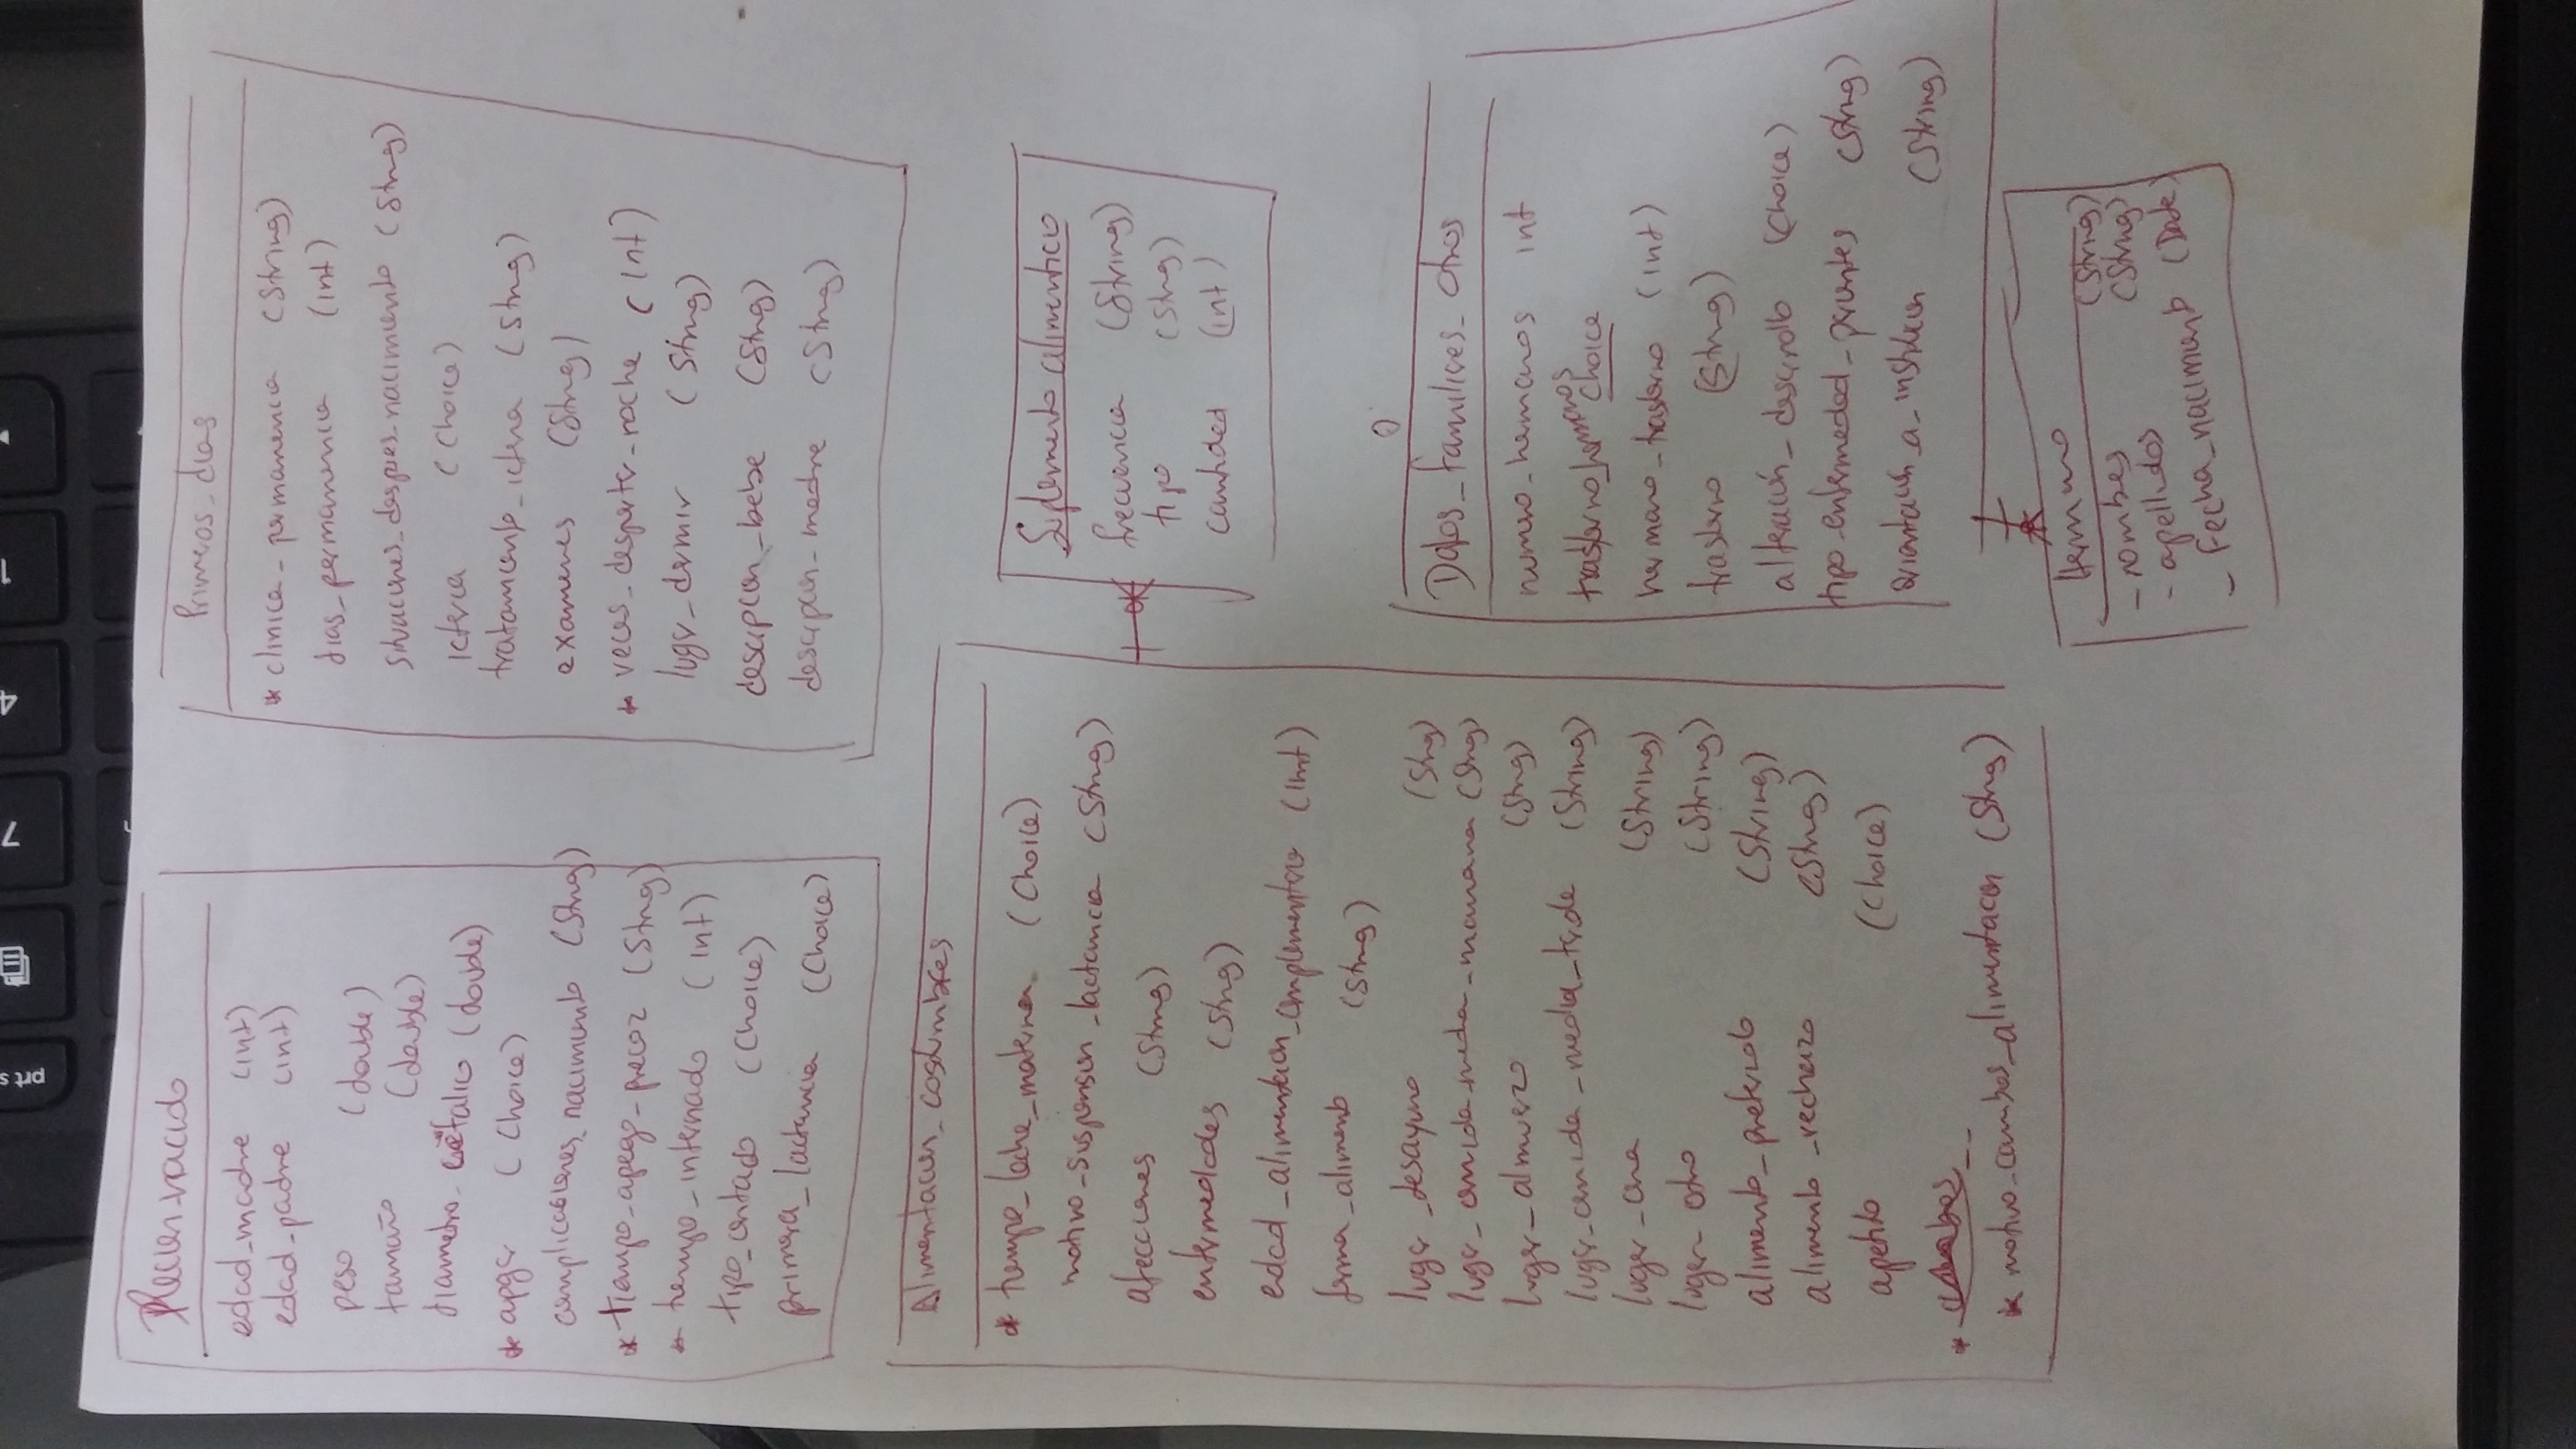 prt s
7
4
1
Recien_nacido
edad_madre (int)
edad_padre (int)
peso (double)
tamaño (double)
diametro_cefalico (double)
* apgar (Choice)
complicaciones_nacimiento (String)
* tiempo_apego_precoz (String)
* tiempo_internado (int)
tipo_contacto (Choice)
primera_lactancia (Choice)
Primeros_dias
* clinica_permanencia (String)
dias_permanencia (int)
situaciones_despues_nacimiento (String)
ictericia (Choice)
tratamiento_ictericia (String)
examenes (String)
* veces_despertar_noche (int)
lugar_dormir (String)
descripcion_bebe (String)
descripcion_madre (String)
Alimentacion_costumbres
* tiempo_leche_materna (Choice)
motivo_suspension_lactancia (String)
afecciones (String)
enfermedades (String)
edad_alimentacion_complementaria (int)
forma_alimento (String)
lugar_desayuno (String)
lugar_comida_media_manana (String)
lugar_almuerzo (String)
lugar_comida_media_tarde (String)
lugar_cena (String)
lugar_otro (String)
alimento_preferido (String)
alimento_rechazo (String)
apetito (Choice)
* motivo_cambios_alimentacion (String)
Suplemento alimenticio
frecuencia (String)
tipo (String)
cantidad (int)
Datos_familiares_otros
numero_hermanos int
trastorno_hermanos choice
hermano_trastorno (int)
trastorno (String)
alteración_desarrollo (Choice)
tipo_enfermedad_parientes (String)
orientación_a_institucion (String)
Hermano
- nombres (String)
- apellidos (String)
- Fecha_nacimiento (Date)